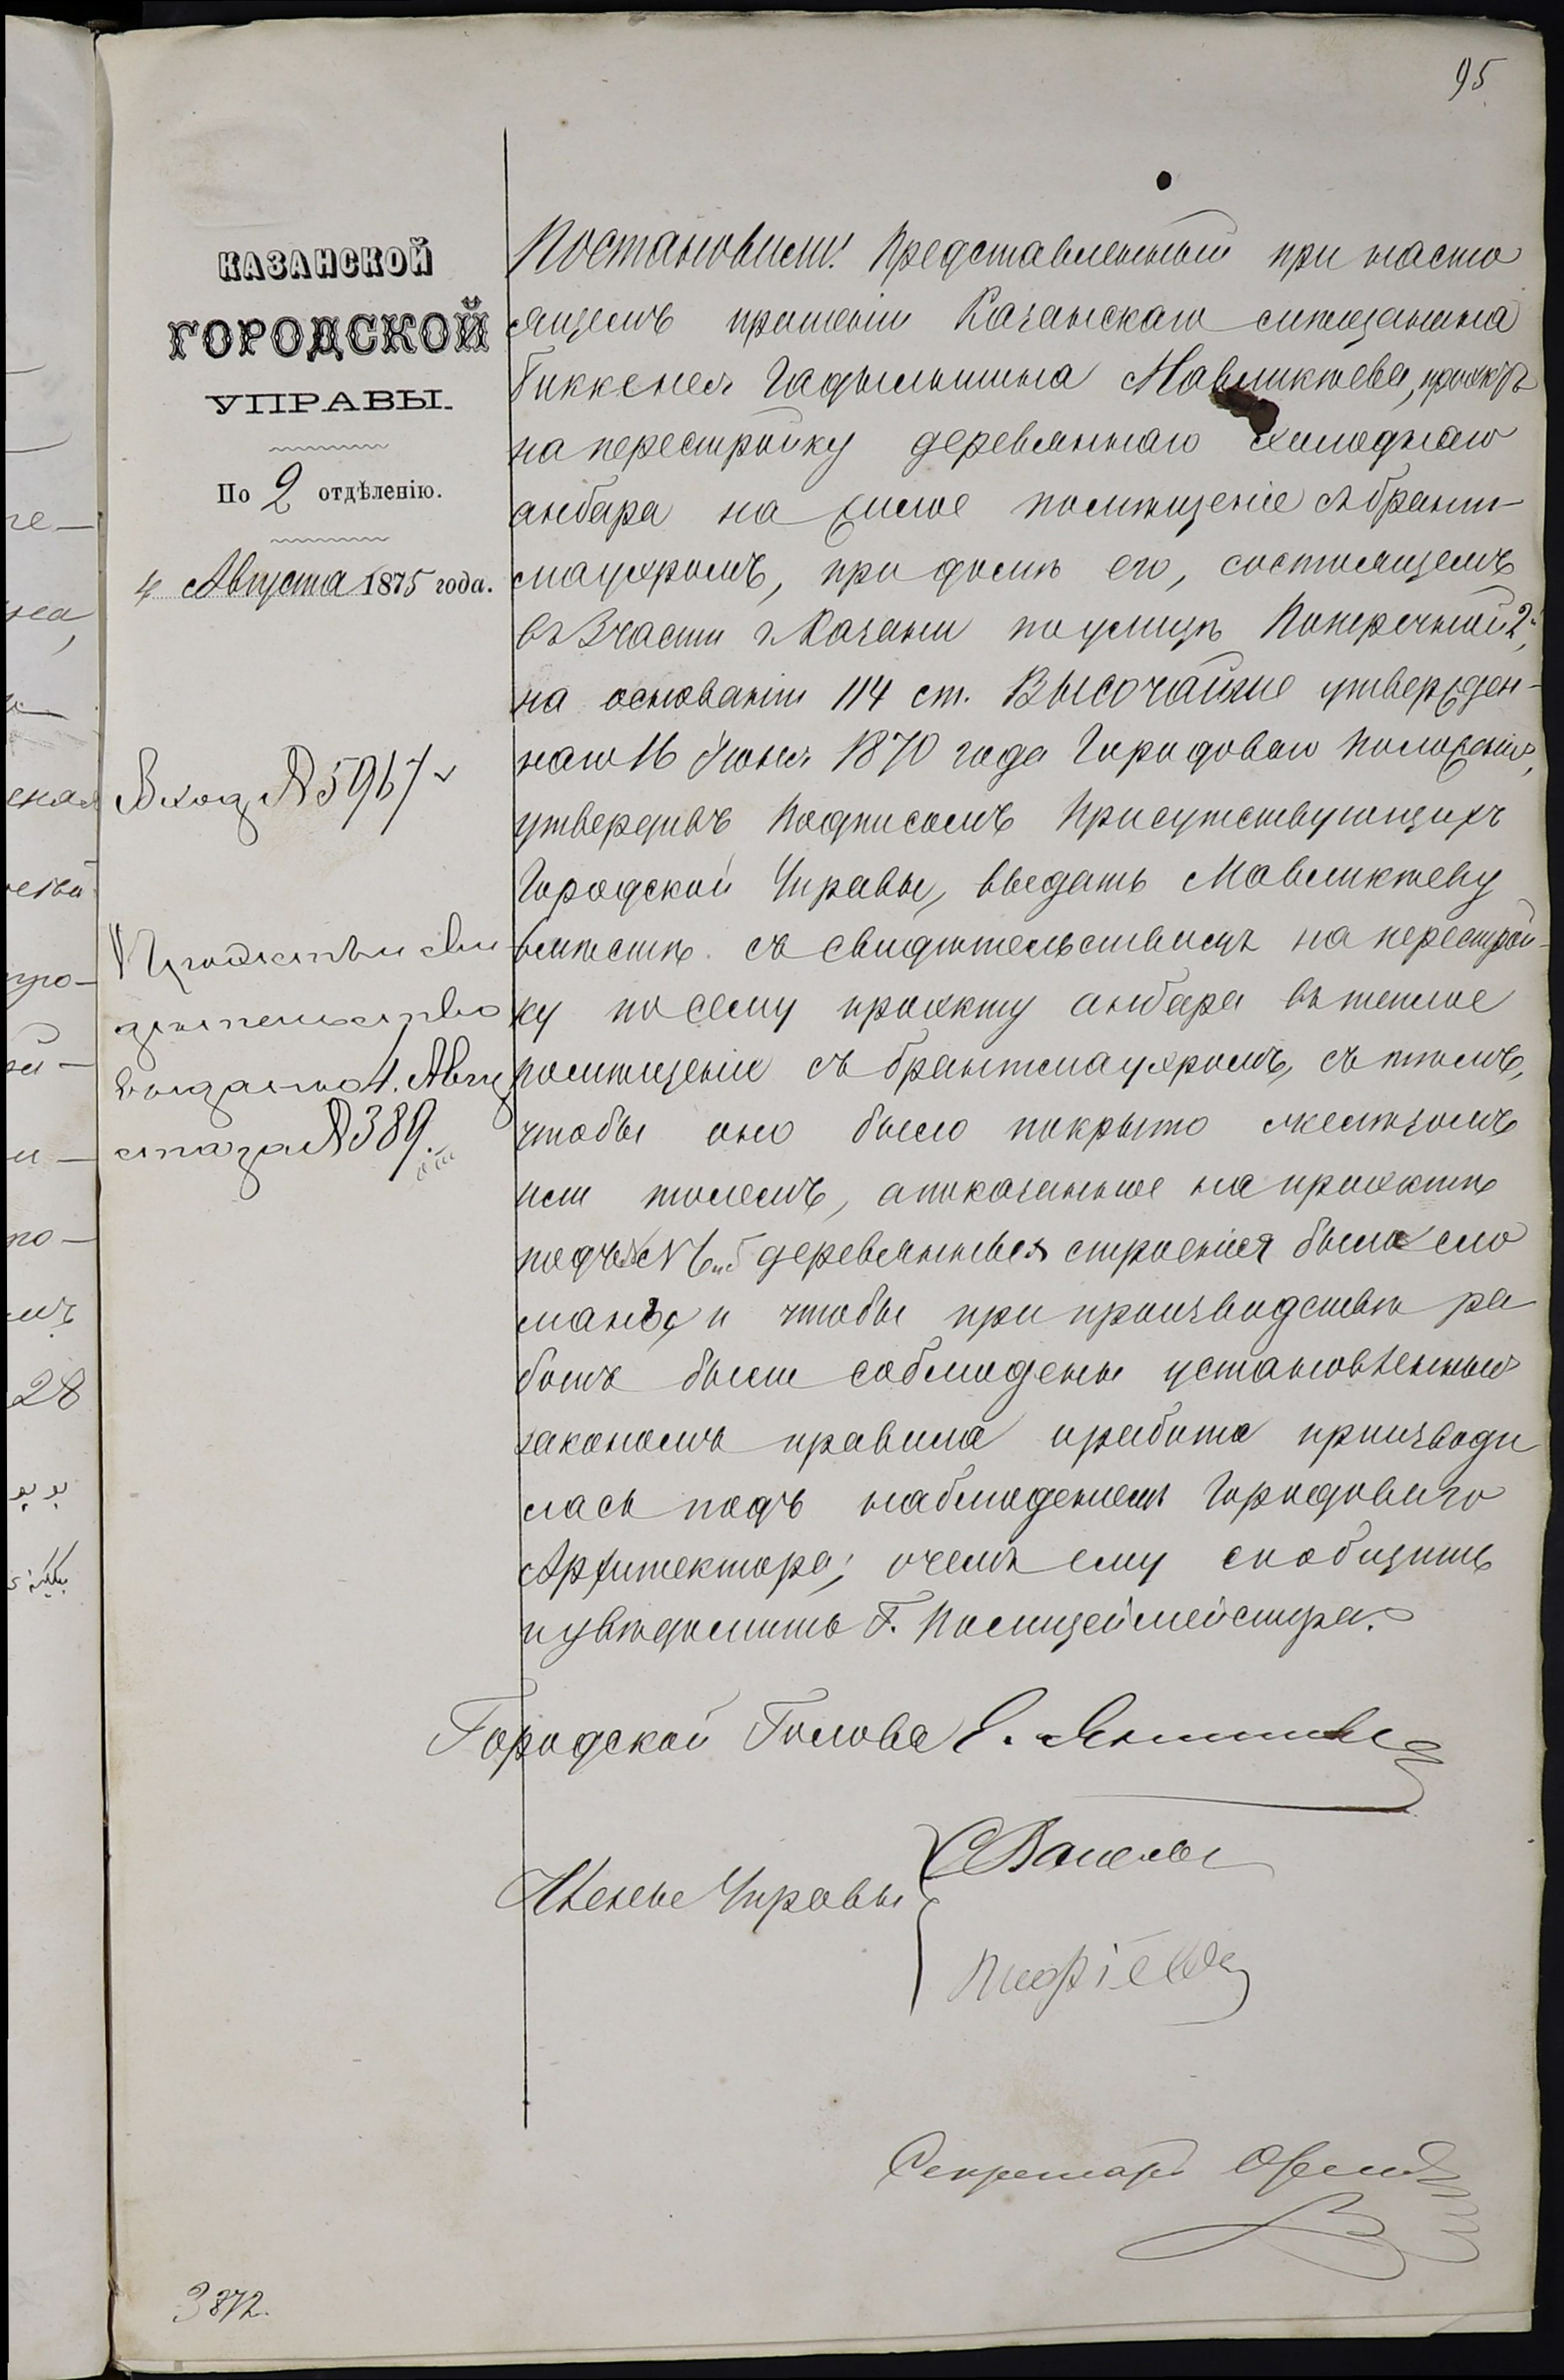 95
КАЗАНСКОЙ
ГОРОДСКОЙ
УПРАВЫ.
По 2 отдѣленію.
4 Августа 1875 года.
Вход № 5967
выдано 4. Авгу
ста за № 389.
Постановили: Представленный при насто
ящемъ прошеніи Казанскаго мѣщанина
Биккенея Гадыльшина Мавликѣева, проэктъ
на перестройку деревяннаго холоднаго
анбара на жилое помѣщеніе съ брант-
мауэромъ, при домѣ его, состоящемъ
въ 3 части г. Казани по улицѣ Поперечной 2й,
на основаніи 114 ст. Высочайше утвержден-
наго 16 Іюня 1870 года Городоваго Положенія,
утвердивъ подписомъ Присутствующихъ
Городской Управы, выдать Мавликѣеву
вмѣстѣ съ свидѣтельствомъ на перестрой-
ку по сему проэкту анбара въ теплое
помѣщеніе съ брантмауэромъ, съ тѣмъ,
чтобы оно было покрыто желѣзомъ
или толемъ, а показанные на проэктѣ
деревянныя строенія были сло
маны и чтобы при производствѣ ра
ботъ были соблюдены установленныя
закономъ правила и работа производи
лась подъ наблюденіемъ Городоваго
Архитектора; о чемъ ему сообщить
и увѣдомить Г. Полицеймейстера.
Городской Голова
Члены Управы
Секретарь
3872.
28